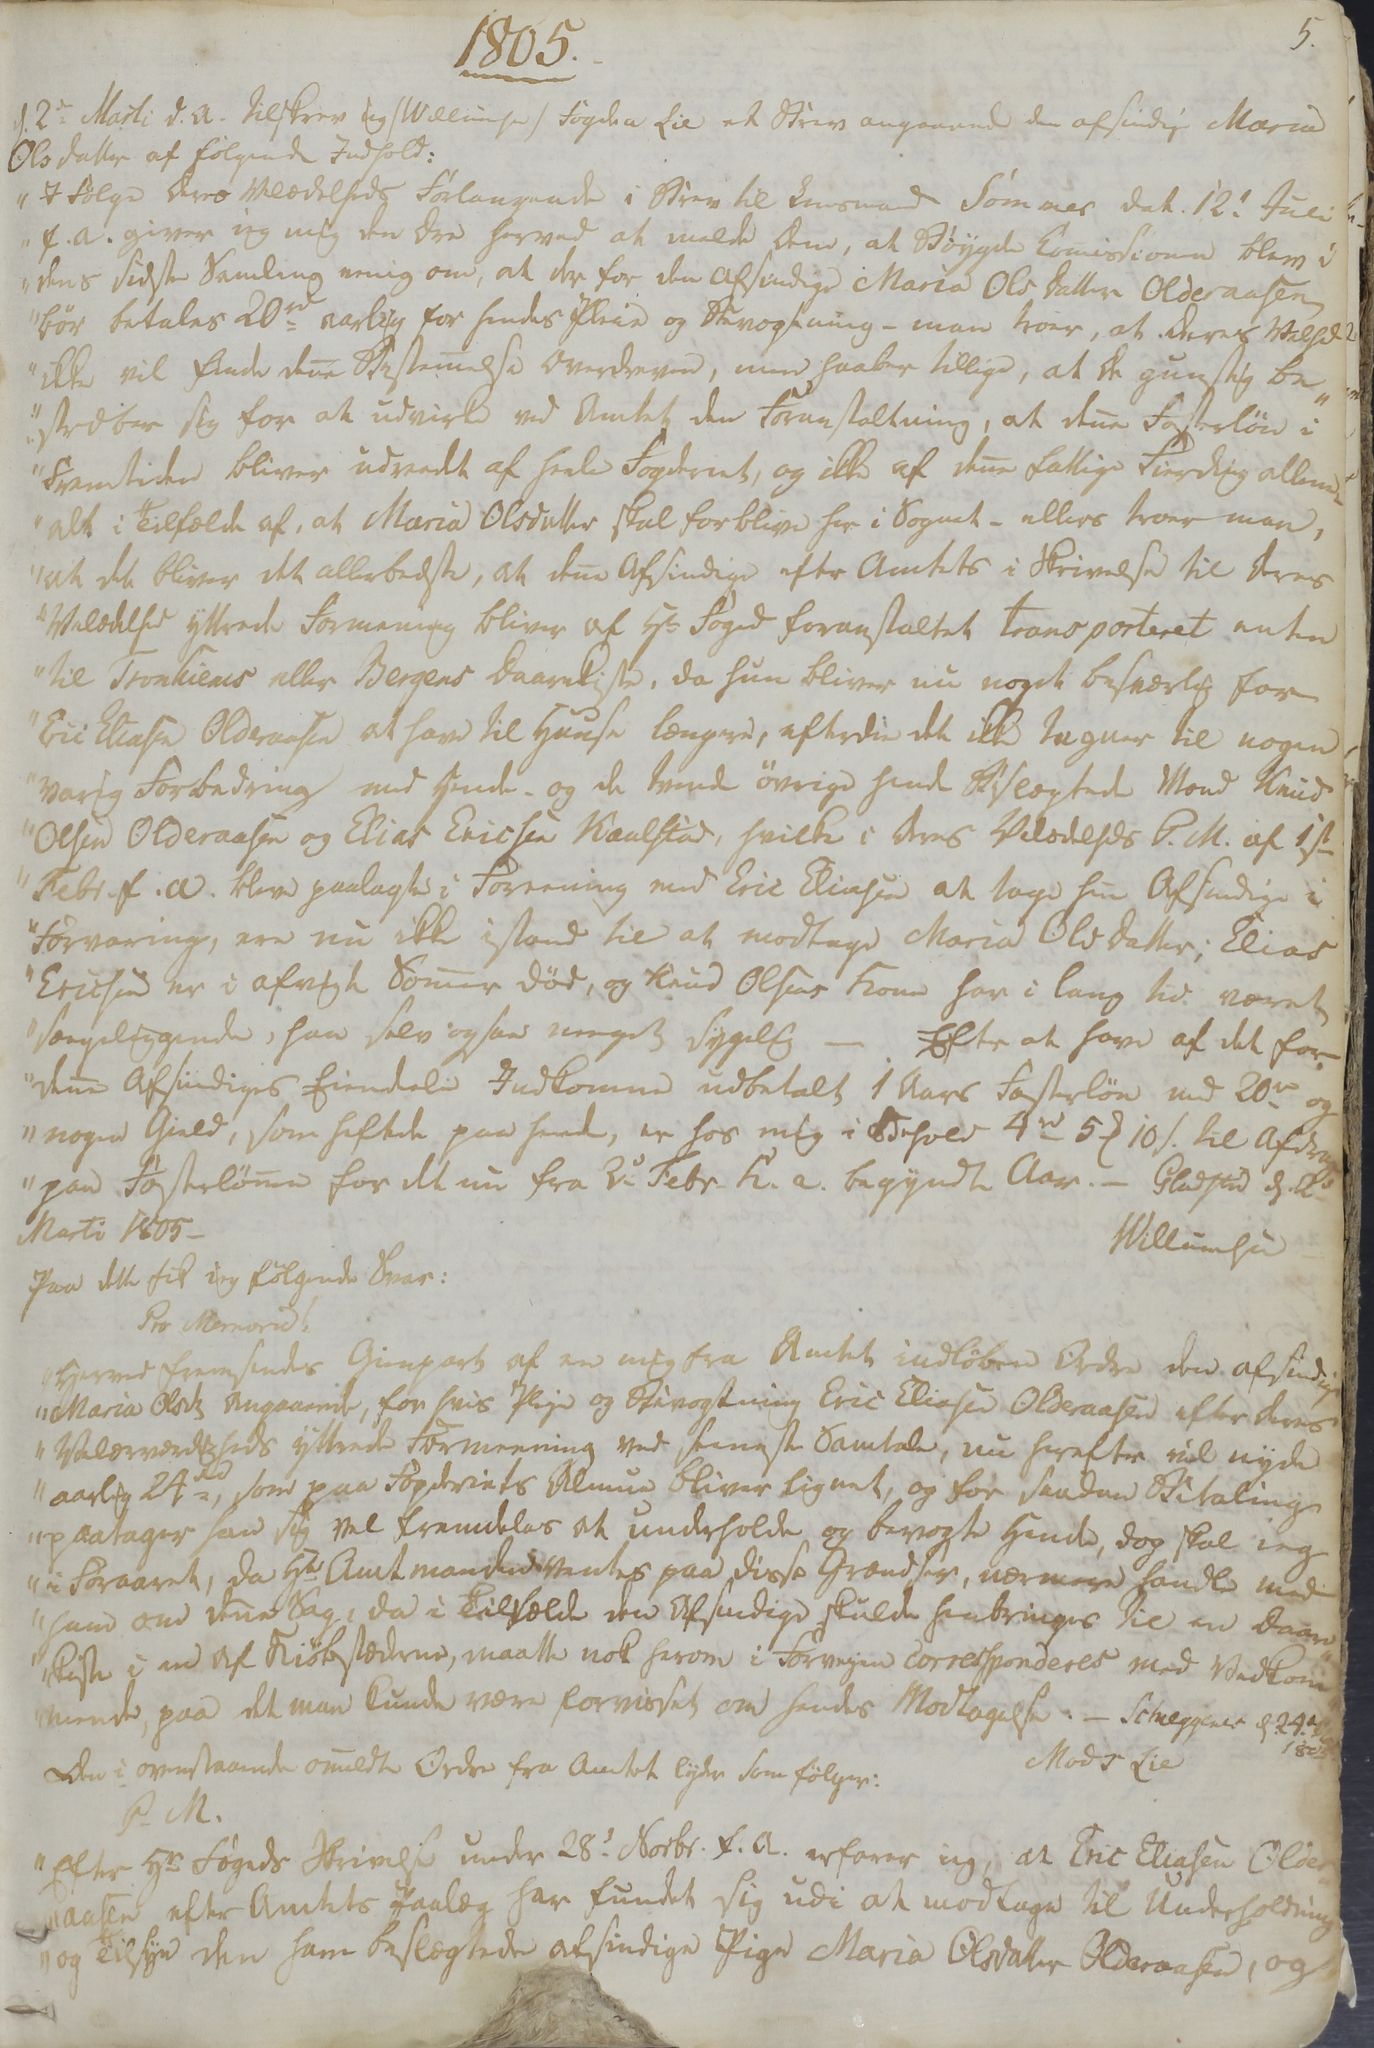 5.
1805.
d. 2den Marti d. A. tilskrev ieg /Willumsen/ Fogden Lie et Brev angaaend den afsindige Maria
Olsdatter af følgende Indhold:
" I Følge Deres Velædelheds Forlangende i Brev til Lensmand Sommer dat. 12t Juli
" f. a. giver ieg mig den Ære herved at melde Dem, at Bøygde Comissionen blev i
" dens sidste Samling eenig om, at der for den afsindige Maria Ols Datter Olderaasen
" bør betales 20 rd aarlig for hendes Pleie og Bevogtning - man troer, at Deres Velhed
" ikke vil finde denne Bestemmelse overdreven, men haaber tillige, at De gunstig be
" stræber sig for at udvirke ved Amtet den Foranstaltning, at denne Fosterløn i
" Fremtiden bliver udreedt af heele Fogderiet, og ikke af denne fattige Fierding allene
" alt i Tilfælde af, at Maria Olsdatter skal forblive her i Sognet - ellers troer man,
" at det bliver det allerbedste, at denne Afsindige efter Amtets i Skrivelse til Deres
" Velædelhed yttrede Formening bliver af Hr Foged foranstaltet transporteret enten
" til Tronhiems eller Bergens Daarekiste, da hun bliver nu noget besværlig for
" Eric Eliasen Olderaasen at have til Huuse længere, efterdie det ikke tegner til nogen
" varig Forbedring med hende - og de tvende øvrige hende Beslægtede Mænd Knud
" Olsen Olderaasen og Elias Erichsen Kaalstad, hvilke i Deres Velædelheds P. M. af 1ste
" Febr. f. a. bleve paalagte i Foreening med Eric Eliasen at tage hin Afsindige i
" Forvaring, ere nu ikke istand til at modtage Maria Ols Datter; Elias
" Erichsen er i afvigte Sommer død, og Knud Olsens Kone har i lang tid været
" sængeliggende, han selv ogsaa meget sygelig — Efter at have af det for
" denne Afsindiges Eiendele Indkomne udbetalt 1 Aars Fosterløn med 20 rd og
" nogen Gield, som heftede paa hende, er hos mig i Behold 4 rd 5 ₰ 10 s. til Afdrag
" paa Fosterlønnen for det nu fra 2d Febr. h. a. begyndte Aar. — Gladstad d. 2de
Marti 1805 -
Willumsen
Paa dette fik ieg følgende Svar:
Pro Memoria!
" Herved fremsendes Gienpart af en mig fra Amtet indløben Ordre den afsindige
" Maria Olsd. angaaende, for hvis Pleje og Bevogtning Eric Eliasen Olderaasen efter Deres
" Velærværdigheds yttrede Formeening ved seeneste Samtale, nu herefter vil nyde
" aarlig 24 rd, som paa Fogderiets Almue bliver lignet, og for saadan Betaling
" paatager han sig vel fremdeles at underholde og bevogte Hende, dog skal ieg
" i Foraaret, da Hr Amtmanden ventes paa disse Grændser, nærmere handle med
" ham om denne Sag, da i Tilfælde den Afsindige skulde henbringes til en Daare
" kiste i en af Kiøbstæderne, maatte nok herom i Forveyen corresponderes med Vedkom
" mende, paa det man kunde være forvisset om hendes Modtagelse. — Scheggenes d. 24de
1805
Mads Lie
Den i ovenstaaende ommeldte Ordre fra Amtet lyder som følger:
P. M.
" Efter Hr Fogeds Skrivelse under 28d Novbr. f. A. erfarer ieg, at Eric Eliasen Older
" aasen efter Amtets Paalæg har fundet sig udi at modtage til Underholdning
" og Tilsyn den ham beslægtede afsindige Pige Maria Olsdatter Olderaasen, og